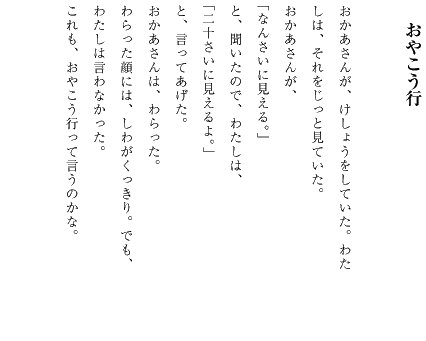 おやこう行
おかあさんが、けしょうをしていた。わた
しは、それをじっと見ていた。
おかあさんが、
「なんさいに見える。」
と、聞いたので、わたしは、
「二十さいに見えるよ。」
と、言ってあげた。
おかあさんは、わらった。
わらった顔には、しわがくっきり。でも、
わたしは言わなかった。
これも、おやこう行って言うのかな。